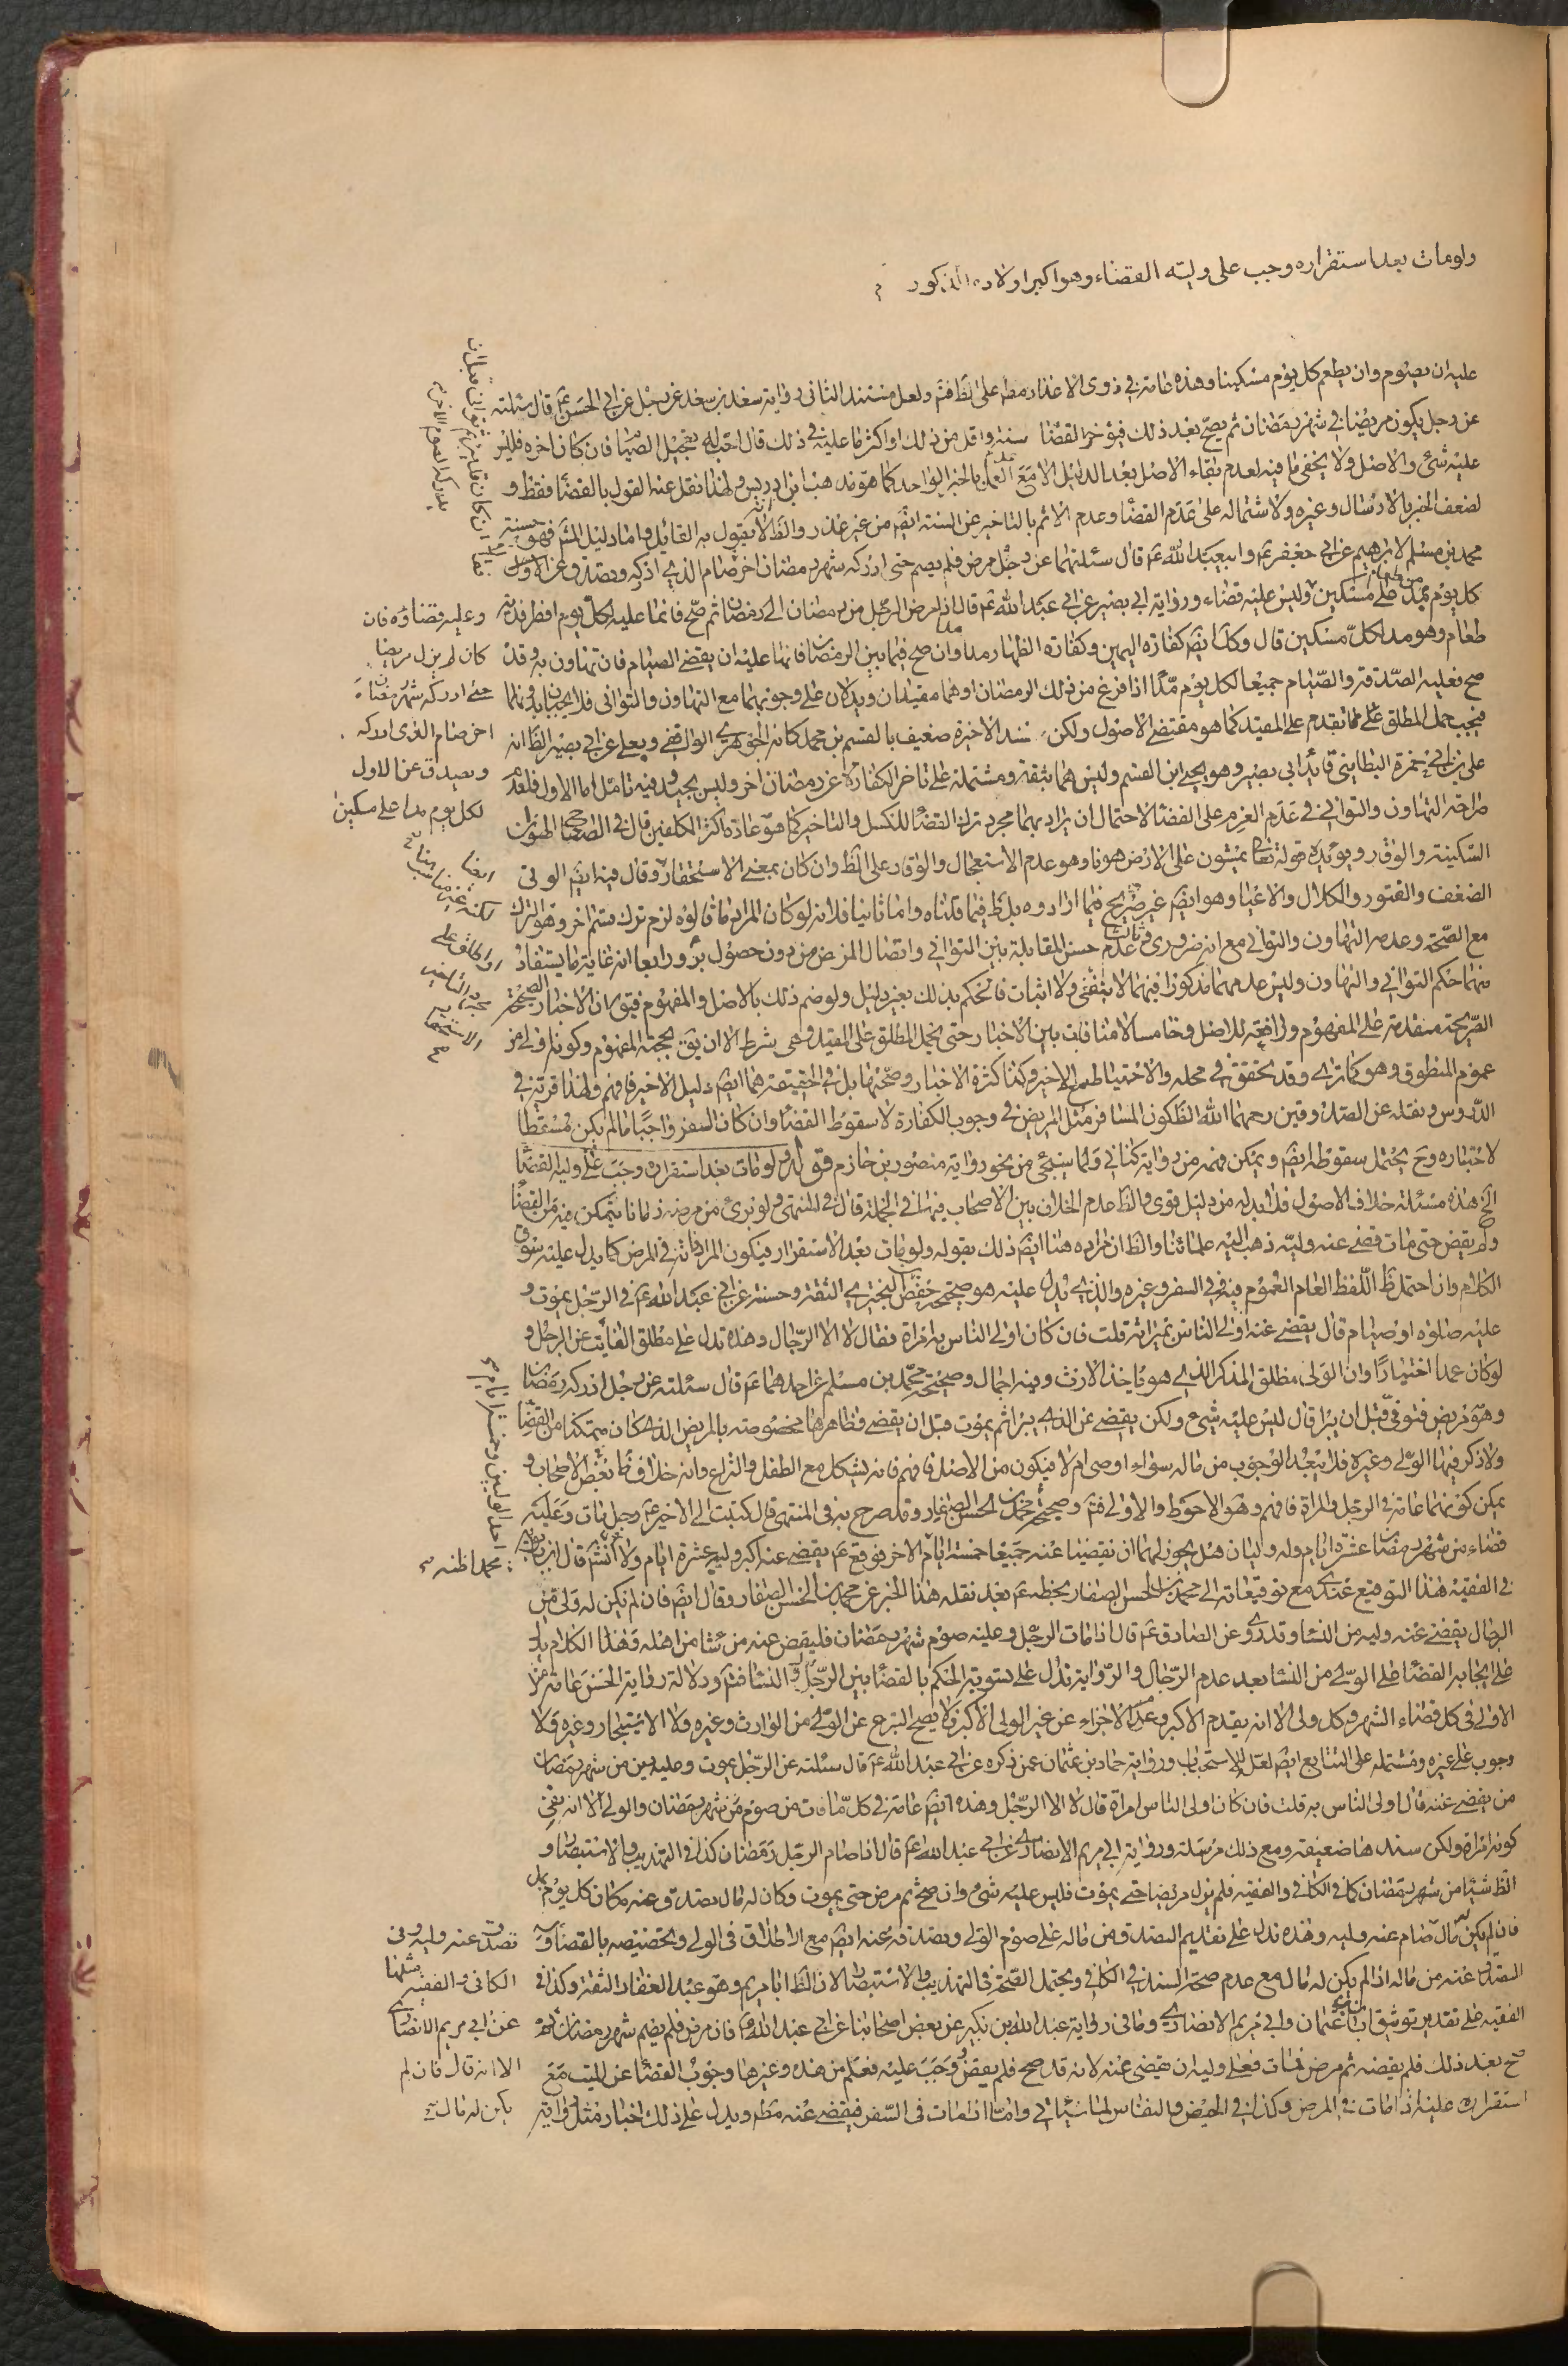 ولو مات بعد استقراره وجب على وليّه القضاء وهو اكبر اولاده الذكور
عليه ان يصوم وان يطعم كل يوم مسكينا وهذه عامة في ذوى الاعذار مطم على الظ فتم ولعل مستند الثانى رواية سعد بن سعد عن رجل عن ابي الحسن ع قال سئلته
عن رجل يكون مريضا في شهر رمضان ثم يصح بعد ذلك فيؤخر القضا سنة واقل من ذلك او اكثر ما عليه في ذلك قال احب له تعجيل الصيام فان كان اخره فليس
عليه شئ والاصل ولا يخفى ما فيه لعدم بقاء الاصل بعد الدليل الا مع العمل بالخبر الواحد كما هو مذهب ابن ادريس ولهذا نقل عنه القول بالقضا فقط و
لضعف الخبر بالارسال وغيره ولاشتماله على عدم القضا وعدم الاثم بالتاخير عن السنة ايضم من غير عذر والظ الا يقول به القايل واما دليل المتم فهو حسنة
محمد بن مسلم لابرهيم عن ابي جعفر ع وابيعبد الله ع قال سئلتهما عن رجل مرض فلم يصم حتى ادركه شهر رمضان اخر صام الذي ادركه وتصدق عن الاول
كل يوم بمد على مسكين وليس عليه قضاء ورواية ابي بصير عن ابي عبد الله ع قال اذا مرض الرجل من رمضان الى رمضان ثم صح فانما عليه لكل يوم افطر فدية
طعام وهو مد لكل مسكين قال وكك ايضم كفارة اليمين وكفارة الظهار مدا وان صح فيما بين الرمضان فانما عليه ان يقضي الصيام فان تهاون به وقد
صح فعليه الصدقة والصيام جميعا لكل يوم مدا اذا فرغ من ذلك الرمضان وهما مقيدان ويدلان على وجوبهما مع التهاون والتوانى
فيجب حمل المطلق على ما تقدم على المقيد كما هو مقتضى الاصول ولكن سند الاخيرة ضعيف بالقسم بن محمد كانه الجوهري الواقفي وبعلي عن ابي بصير الظ انه
على بن ابي حمزة البطاينى قايد ابي بصير وهو يحيى ابن القسم وليس هما بثقة ومشتملة على تاخر الكفارة عن رمضان اخر وليس بجيد وفيه تامل اما الاول فلعدم
صراحة التهاون والتوانى في عدم العزم على القضا لاحتمال ان يراد بهما مجرد ترك القضا للكسل والتاخير كما هو عادة اكثر المكلفين قال في الصحاح الهون
السكينة والوقار ويؤيده قوله تعالى يمشون على الارض هونا وهو عدم الاستعجال والوقار على الظ وان كان بمعنى الاستحقار وقال فيه ايضم الونى
الضعف والفتور والكلال والاعيا وهو ايضم غير صريح فيما ارادوه بل ظ فيما قلناه واما ثانيا فلانه لو كان المراد ما قالوه لزم ترك قسم اخر وهو الترك
مع الصحة وعدم التهاون والتوانى مع انه ضروري وثالثا عدم حسن المقابلة بين التوانى واتصال المرض من دون حصول برؤ ورابعا انه غاية ما يستفاد
منهما حكم التوانى والتهاون وليس عدمهما مذكورا فيهما لا بنفى ولا اثبات فالحكم بذلك بغير دليل ولو ضم ذلك بالاصل والمفهوم فيق ان الاخبار الصحيحة
الصريحة متقدمة على المفهوم ورافعة للاصل وخامسا لا منافات بين الاخبار حتى يحمل المطلق على المقيد وهي شرط الا ان يق بحجية المفهوم وكونه اولى من
عموم المنطوق وهو كما ترى وقد تحقق في محله والاحتياط مع الاخير وكذا كثرة الاخبار وصحتها بل في الحقيقة هما ايضم دليل الاخير فافهم ولهذا قربه في
الدروس ونقله عن الصدوقين رحمهما الله الظ كون المسافر مثل المريض في وجوب الكفارة لا سقوط القضا وان كان السفر واجبا ما لم يكن مسقطا
لاختياره وح يحتمل سقوطه ايضم ويمكن فهمه من رواية كنانى ولما سيجئ من نحو رواية منصور بن حازم قوله ولو مات بعد استقراره وجب على وليه القضا
الخ هذه مسئلة خلاف الاصول فلا بد له من دليل قوى والظ عدم الخلاف بين الاصحاب فيها في الجملة قال في المنتهى ولو برئ من مرضه زمانا يتمكن فيه من القضا
ولم يقض حتى مات قضى عنه وليه ذهب اليه علمائنا والظ ان مراده هنا ايضم ذلك بقوله ولو مات بعد الاستقرار فيكون المراد فائته في المرض كما يدل عليه سوق
الكلام وان احتمل ظ اللفظ العام العموم فيه في السفر وغيره والذي يدل عليه هو صحيحة حفص البخترى الثقة وحسنته عن ابي عبد الله ع في الرجل يموت و
عليه صلوة او صيام قال يقضى عنه اولى الناس بميراثه قلت فان كان اولى الناس به امراة فقال لا الا الرجال وهذه تدل على مطلق الفايت عن الرجل و
لو كان عمدا اختيارا وان الولى مطلق المذكر الذي هو ياخذ الارث وفيه اجمال وصحيحة محمد بن مسلم عن احدهما ع قال سئلته عن رجل ادركه رمضان
وهو مريض فتوفى قبل ان يبرا قال ليس عليه شئ ولكن يقضى عن الذي يبرا ثم يموت قبل ان يقضى وظاهرها مخصوصة بالمريض الذى كان متمكنا من القضا
ولا ذكر فيها الولى وغيره فلا يبعد الوجوب من ماله سواء اوصى ام لا فيكون من الاصل فافهم فانه يشكل مع الطفل والنزاع وانه خلاف بعض الاصحاب و
يمكن كونهما عامة في الرجل والمراة فافهم وهو الاحوط والاولى فتم وصحيحة محمد بن الحسن الصفار وقد صرح به في المنتهى قال كتبت الى الاخير ع رجل مات وعليه
قضاء من شهر رمضان عشرة ايام وله وليان هل يجوز لهما ان يقضيا عنه جميعا خمسة ايام الاخر فوقع ع يقضى عنه اكبر وليه عشرة ايام ولاء انش قال ابن بابويه
في الفقيه هذا التوقيع عندي مع توقيعاته الى محمد بن الحسن الصفار بخطه ع بعد نقله هذا الخبر عن محمد بن الحسن الصفار وقال ايضم فان لم يكن له ولى من
الرجال يقضى عنه وليه من النسا وقد روى عن الصادق ع قال اذا مات الرجل وعليه صوم شهر رمضان فليقض عنه من شا من اهله وهذا الكلام يدل
على ايجابه القضا على الولى من النسا بعد عدم الرجال والرواية تدل على تسوية الحكم بالقضا بين الرجال والنسا فتم ودلالة رواية الحسن عامة
الاولى في كل قضاء الشهر وكل ولى الا انه يقدم الاكبر وعدم الاجزاء عن غير الولى الاكبر ولا يصح التبرع عن الولى من الوارث وغيره ولا الاستيجار وغيره ولا
وجوب على غيره ومشتمله على التتابع ايضم لعل للاستحباب ورواية حماد بن عثمان عمن ذكره عن ابي عبد الله ع قال سئلته عن الرجل يموت وعليه دين من شهر رمضان
من يقضى عنه قال اولى الناس به قلت فان كان اولى الناس امراة قال لا الا الرجل وهذه ايضم عامة في كل ما فات من صوم من شهر رمضان والولى الا انه نفى
كونه امراة ولكن سندها ضعيفة ومع ذلك مرسلة ورواية ابي مريم الانصاري عن ابي عبد الله ع قال اذا صام الرجل رمضان كذا في التهذيب والاستبصار و
الظ شيئا من شهر رمضان كما في الكافي والفقيه فلم يزل مريضا حتى يموت فليس عليه شئ وان صح ثم مرض حتى يموت وكان له مال تصدق عنه مكان كل يوم بمد
فان لم يكن له مال صام عنه وليه وهذه تدل على تقديم التصدق من ماله على صوم الولى وتصدقه عنه ايضم مع الاطلاق في الولى وتخصيصه بالقضا و
التصدق عنه من ماله اذا لم يكن له مال مع عدم صحة السند في الكافي ويحتمل الصحة في التهذيب والاستبصار لان الظ ابا مريم هو عبد الغفار الثقة وكذا في
الفقيه على تقدير توثيق ابان بن عثمان وابي مريم الانصاري وما في رواية عبد الله بن بكير عن بعض اصحابنا عن ابي عبد الله ع فان مرض فلم يصم شهر رمضان ثم
صح بعد ذلك فلم يقضه ثم مرض فمات فعلى وليه ان يقضى عنه لانه قد صح فلم يقض ووجب عليه فعلم من هذه وغيرها وجوب القضا عن الميت مع
استقراره عليه اذا مات في المرض وكذا في الحيض والنفاس لما سياتي واما اذا مات في السفر فيقضى عنه مطم ويدل على ذلك اخبار مثل رواية
وعليه قضاؤه فان
كان لم يزل مريضا
حتى ادركه شهر رمضان
اخر صام الذى ادركه
وتصدق عن الاول
لكل يوم مدا على مسكين
احد الوليين وخمسة ايام
محمد اظنه
تصدق عنه وليه وفى
الكافى والفقيه مثلها
عن ابي مريم الانصاري
الا انه قال فان لم
يكن له مال